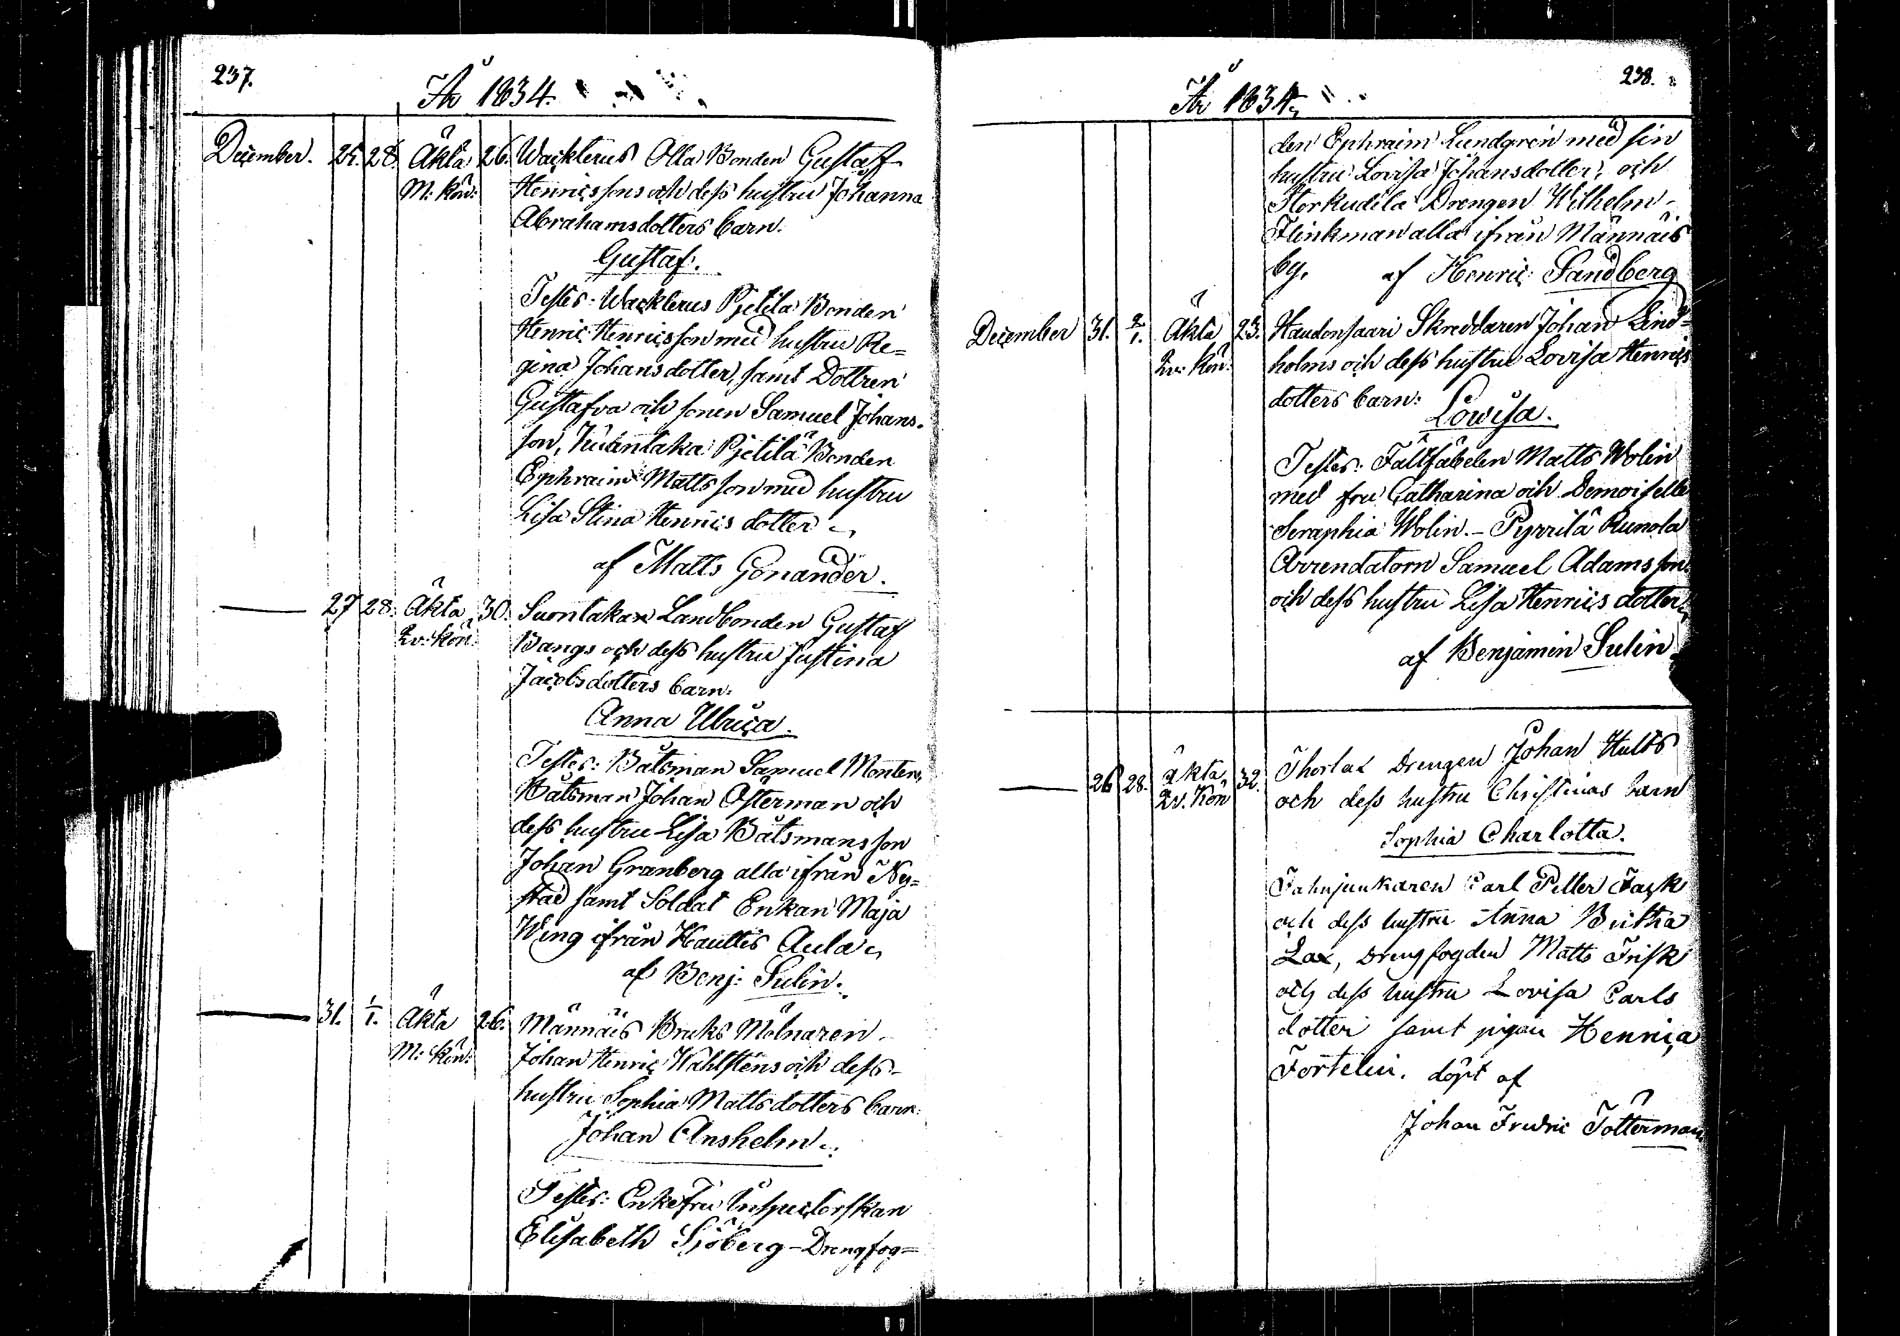 237.
År 1834.
December. 25. 28. Äkta 26. Wacklerus Olla Bonden Gustaf
M: Kön: Henricssons och dess hustru Johanna
Abrahamsdotters barn.
Gustaf.
Testes: Wacklerus Pjetilä Bonden
Henric Henricsson med hustru Re=
gina Johansdotter, samt Dottren
Gustafva och sonen Samuel Johans-
son, Pjetilä Bonden
Ephraim Mattsson med hustru
Lisa Stina Henrics dotter
af Matts Gonander.
27 28. Äkta 30. Suontaka Landbonden Gustaf
Qv: Kön: Bangs och dess hustru Justina
Jacobsdotters barn:
Anna Ulrica.
Testes: Båtsman Samuel Monten,
Båtsman Johan Österman och
dess hustru Lisa Båtsmansson
Johan Granberg alla ifrån Ny=
stad samt Soldat Enkan Maja
Wing ifrån Haultis Aula
af Benj: Sulin.
31. 1/1. Äkta 26. Männäis Bruks Mölnaren
M: Kön: Johan Henric Wahlstens och dess
hustru Sophia Mattsdotters barn:
Johan Anshelm.
Testes: Enkefru Inspectorskan
Elisabeth Sjöberg - Drengfog=
238.
År 1834.
den Ephraim Lundgren med sin
hustru Lovisa Johansdotter, och
Storkudila Drengen Wilhelm
Flinkman alla ifrån Männäis
by. af Henric Sandberg
December 31. 2/1. Äkta 23. Haudonsaari Skreddaren Johan Lind=
Qv: Kön: holms och dess hustru Lovisa Henrics
dotters barn:
Lowisa.
Testes: Fältfäbelen Matts Wolin
med fru Catharina och Demoiselle
Seraphia Wolin. - Pyrrilä Runola
Arrendatorn Samuel Adamsson
och dess hustru Lisa Henrics dotter
af Benjamin Sulin
26 28. äkta 32. Thorlax Drengen Johan Hults
Qv. Kön och dess hustru Christinas barn
Sophia Charlotta.
Fahnjunkaren Carl Petter Fack
och dess hustru Anna Britha
Lax, Drengfogden Matts Frisk
och dess hustru Lovisa Carls
dotter samt pigan Henrica
Fortelin. döpt af
Johan Fredric Tötterman